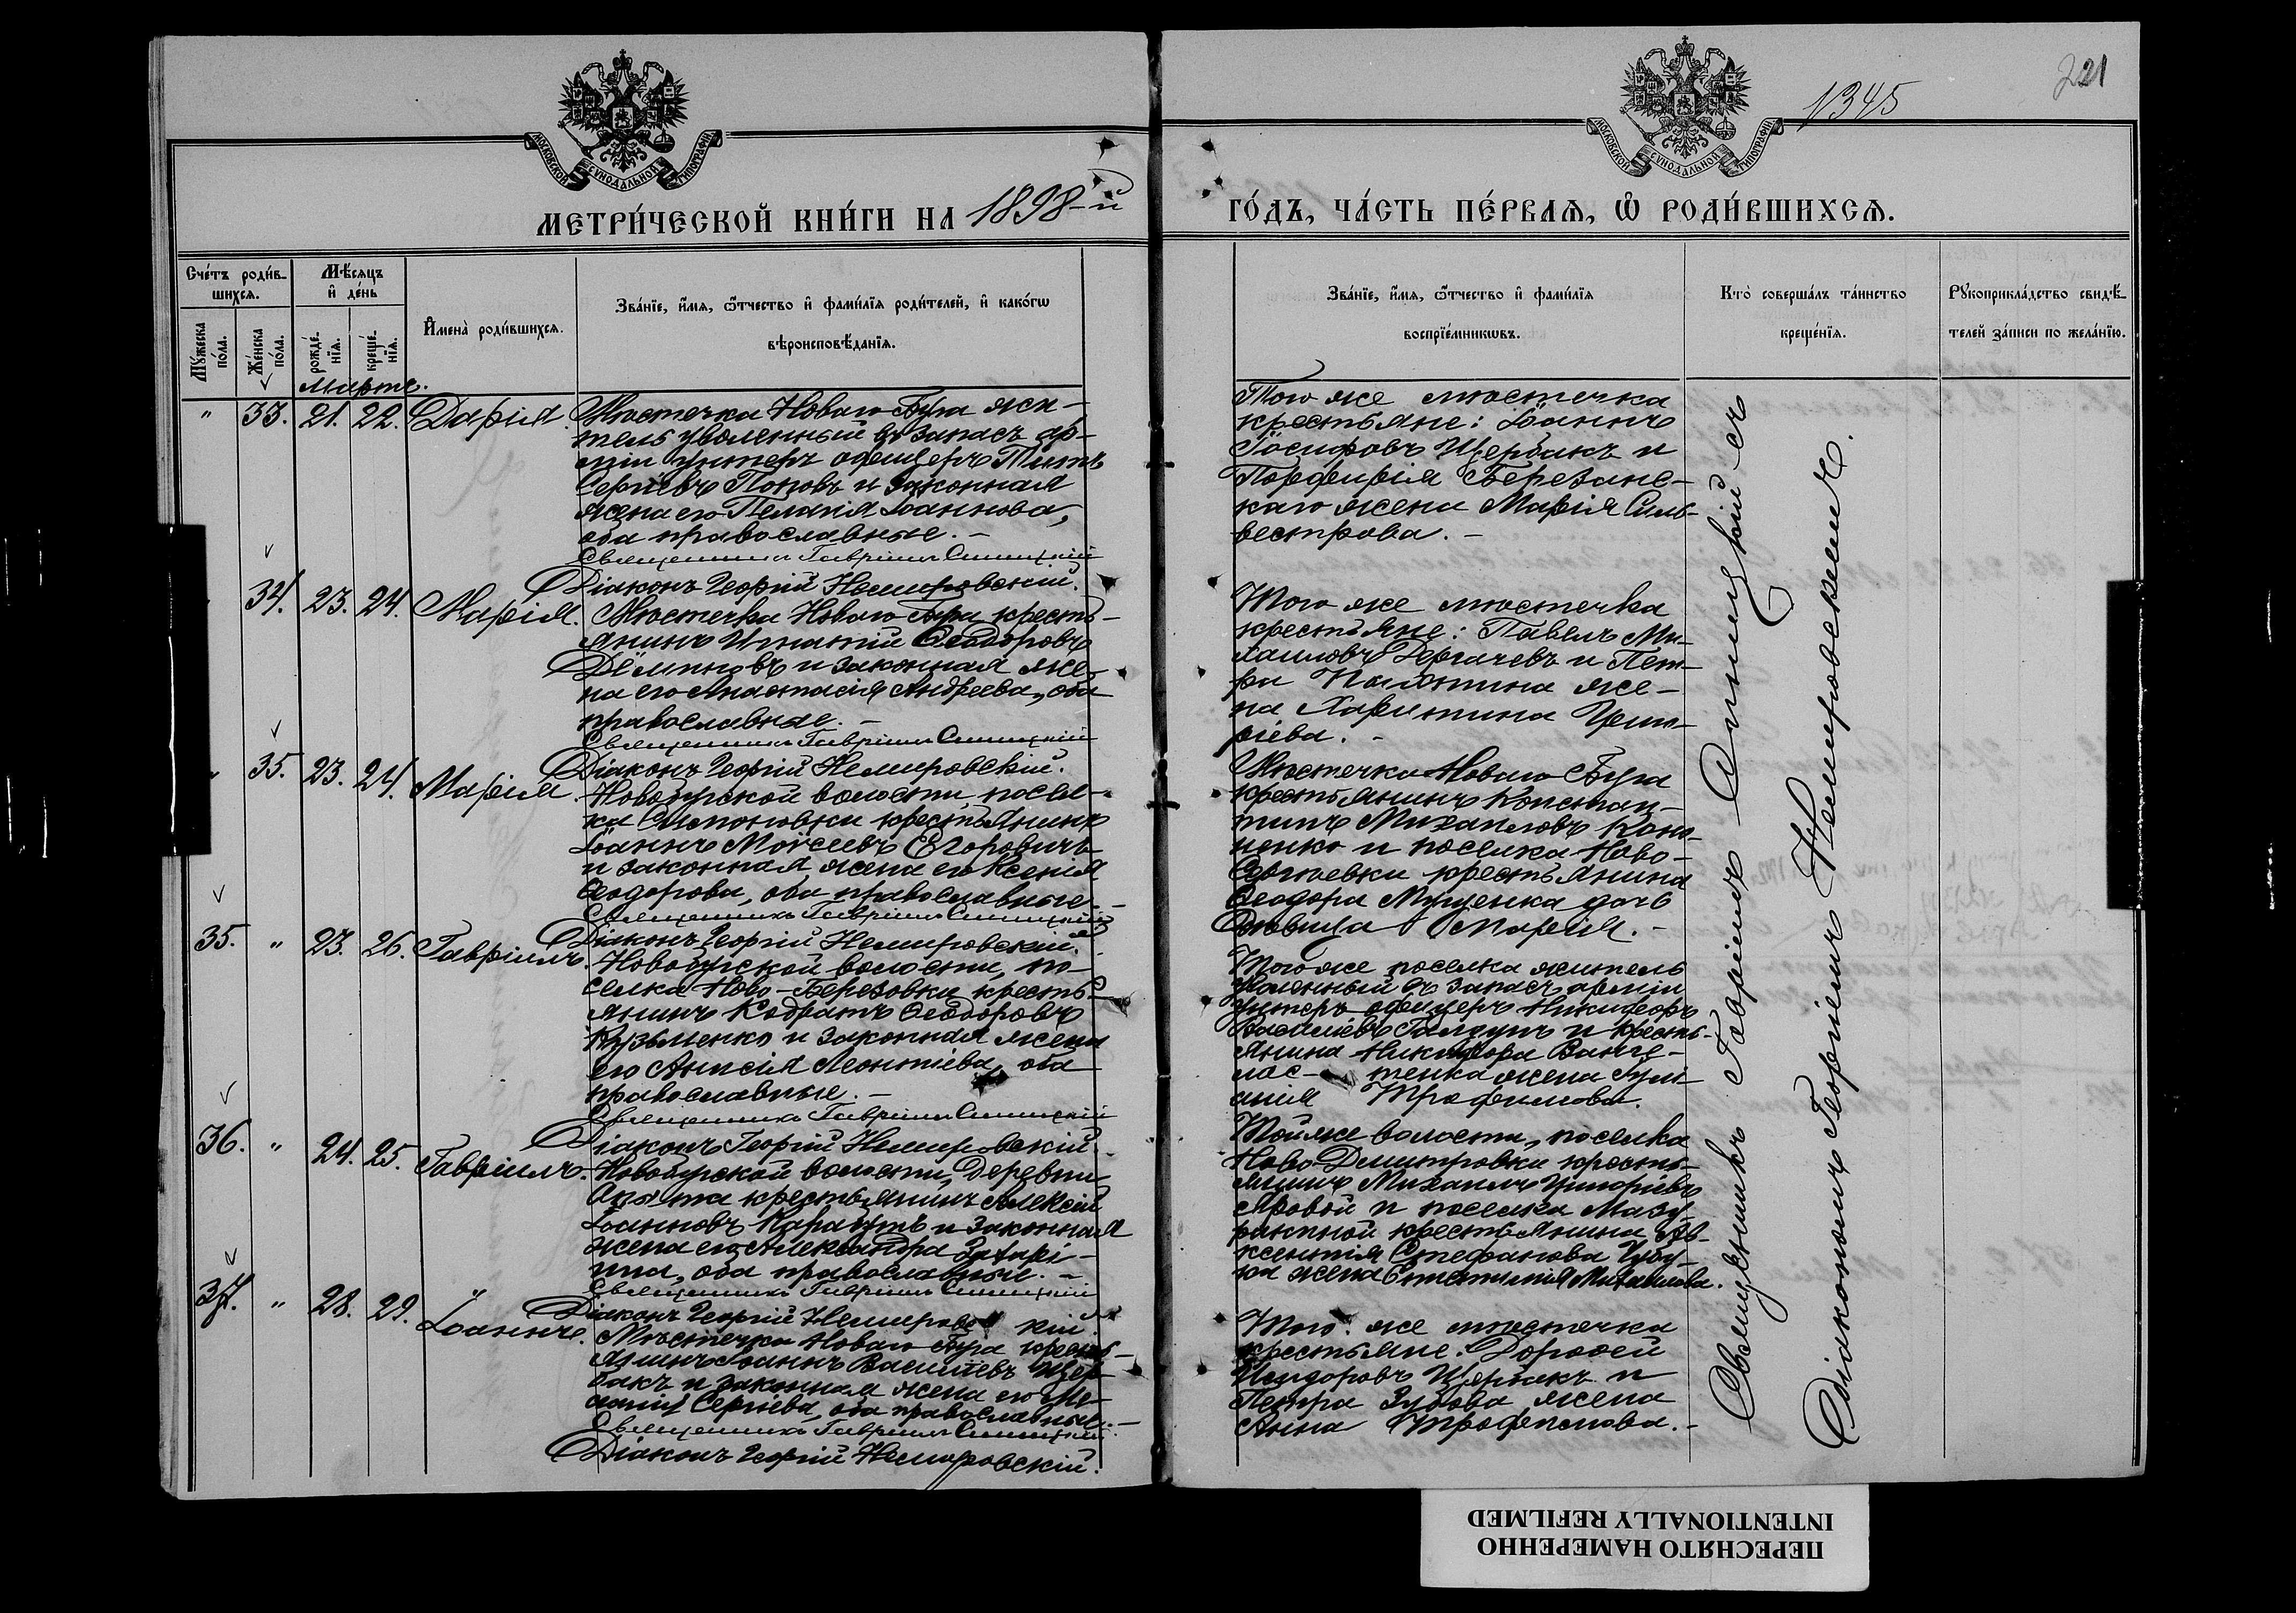 1345
221
МОСКОВСКОЙ СѴНОДАЛЬНОЙ ТИПОГРАФІИ.
МОСКОВСКОЙ СѴНОДАЛЬНОЙ ТИПОГРАФІИ.
МЕТРИ́ЧЕСКОЙ КНИ́ГИ НА 1898-й
ГО́ДЪ, ЧА́СТЬ ПЕ́РВАѦ, Ѡ҆ РОДИ́ВШИХСѦ.
Сче́тъ роди́в-
шихсѧ.
Мꙋ́жеска по́ла.
Же́нска по́ла.
Мѣ́сѧцъ и҆ де́нь
рожде́-
нїѧ.
креще́-
нїѧ.
И҆мена̀ роди́вшихсѧ.
Зва́нїе, и҆́мѧ, ѻ҆́тчество и҆ фами́лїѧ роди́телей, и҆ како́гѡ
вѣроисповѣ́данїѧ.
Зва́нїе, и҆́мѧ, ѻ҆́тчество и҆ фами́лїѧ
воспрїе́мникѡвъ.
Кто̀ соверша́лъ та́инство
креще́нїѧ.
Рꙋкоприкла́дство свидѣ́-
телей за́писи по жела́нїю.
Марта.
" 33. 21. 22. Дарія.
Мѣстечка Новаго Буга жи-
тель уволенный въ запасъ ар-
міи унтеръ офицеръ Титъ
Сергіевъ Поповъ и законная
жена его Пелагія Іоаннова,
оба православные. -
Священникъ Гавріилъ Синицкій
Діаконъ Георгій Немировскій.
Того же мѣстечка
крестьяне: Іоаннъ
Іосифовъ Щербакъ и
Порфирія Березинс-
каго жена Марія Силь-
вестрова. -
34. 23. 24. Марія.
Мѣстечка Новаго Буга кресть-
янинъ Игнатій Ѳеодоровъ
Дёминовъ и законная же-
на его Анастасія Андреева, оба
православные. -
Священникъ Гавріилъ Синицкій
Діаконъ Георгій Немировскій.
Того же мѣстечка
крестьяне: Павелъ Ми-
хаиловъ Дергачевъ и Пет-
ра же-
на Харитина Григо-
ріева. -
" 35. 23. 24. Марія.
Новобугской волости, посел-
ка крестьянинъ
Іоаннъ Моисеевъ Егоровичъ
и законная жена его Ксенія
Ѳеодорова, оба православные. -
Священникъ Гавріилъ Синицкій
Діаконъ Георгій Немировскій.
Мѣстечка Новаго Буга
крестьянинъ Констан-
тинъ Михаиловъ Коно-
ненко и поселка Ново-
Сергіевки крестьянина
Ѳеодора Мищенка дочь
дѣвица Марія. -
35. " 23. 26. Гавріилъ.
Новобугской волости, по-
селка Ново-Березовки кресть-
янинъ Кодратъ Ѳеодоровъ
Кузьменко и законная жена
его Анисія Леонтіева, оба
православные. -
Священникъ Гавріилъ Синицкій
Діаконъ Георгій Немировскій.
Того же поселка житель
уволенный въ запасъ арміи
унтеръ офицеръ Никифоръ
Василіевъ и кресть-
янина Никифора
жена Іули-
анія Трофимова.
36. " 24. 25. Гавріилъ.
Новобугской волости, деревни
крестьянинъ Алексій
Іоанновъ Караутъ и законная
жена его Александра Захарі-
ина, оба православные. -
Священникъ Гавріилъ Синицкій
Діаконъ Георгій Немировскій.
Той же волости, поселка
Ново Дмитровки кресть-
янинъ Михаилъ Григоріевъ
Яровой и поселка
крестьянина Ав-
ксентія Стефанова
жена Михаилова.
37. " 28. 29. Іоаннъ.
Мѣстечка Новаго Буга кресть-
янинъ Іоаннъ Василіевъ Щер-
бакъ и законная жена его Ме-
ланія Сергіева, оба православные. -
Священникъ Гавріилъ Синицкій
Діаконъ Георгій Немировскій.
Того же мѣстечка
крестьяне: Дороѳей
Исидоровъ Щербакъ и
Петра Зубова жена
Анна Трофимова. -
Священникъ Гавріилъ Синицкій съ
Діакономъ Георгіемъ Немировскимъ.
ПЕРЕСНЯТО НАМЕРЕННО
INTENTIONALLY REFILMED